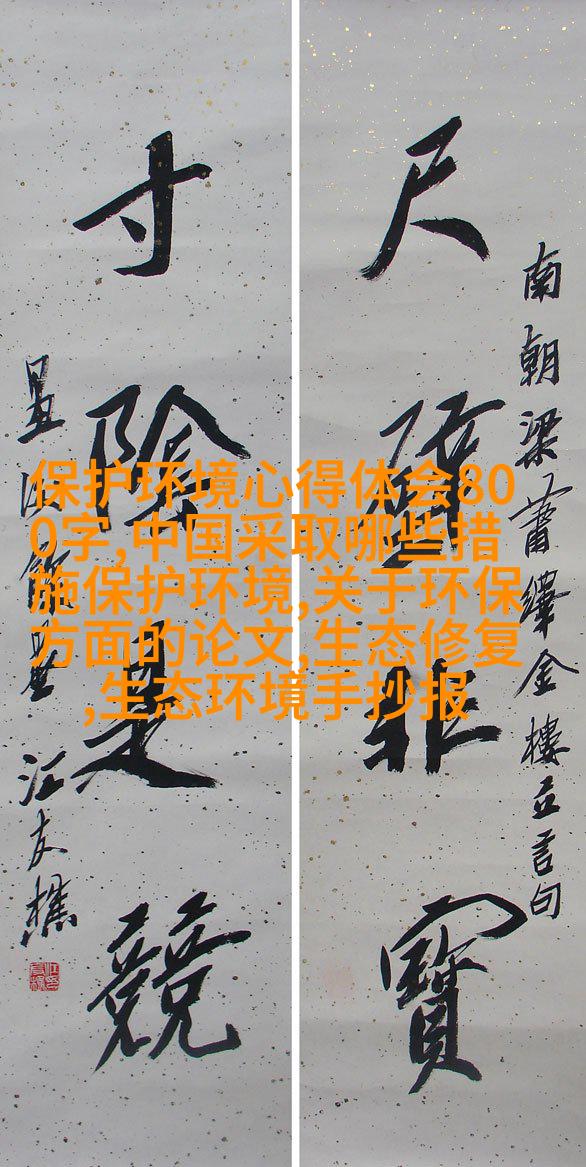 南朝梁蕭繹金樓立言句
尺璧非寶
寸陰是競
汪友樵
保护环境心得体会80
0字,中国采取哪些措
施保护环境,关于环保
方面的论文,生态修复
,生态环境手抄报